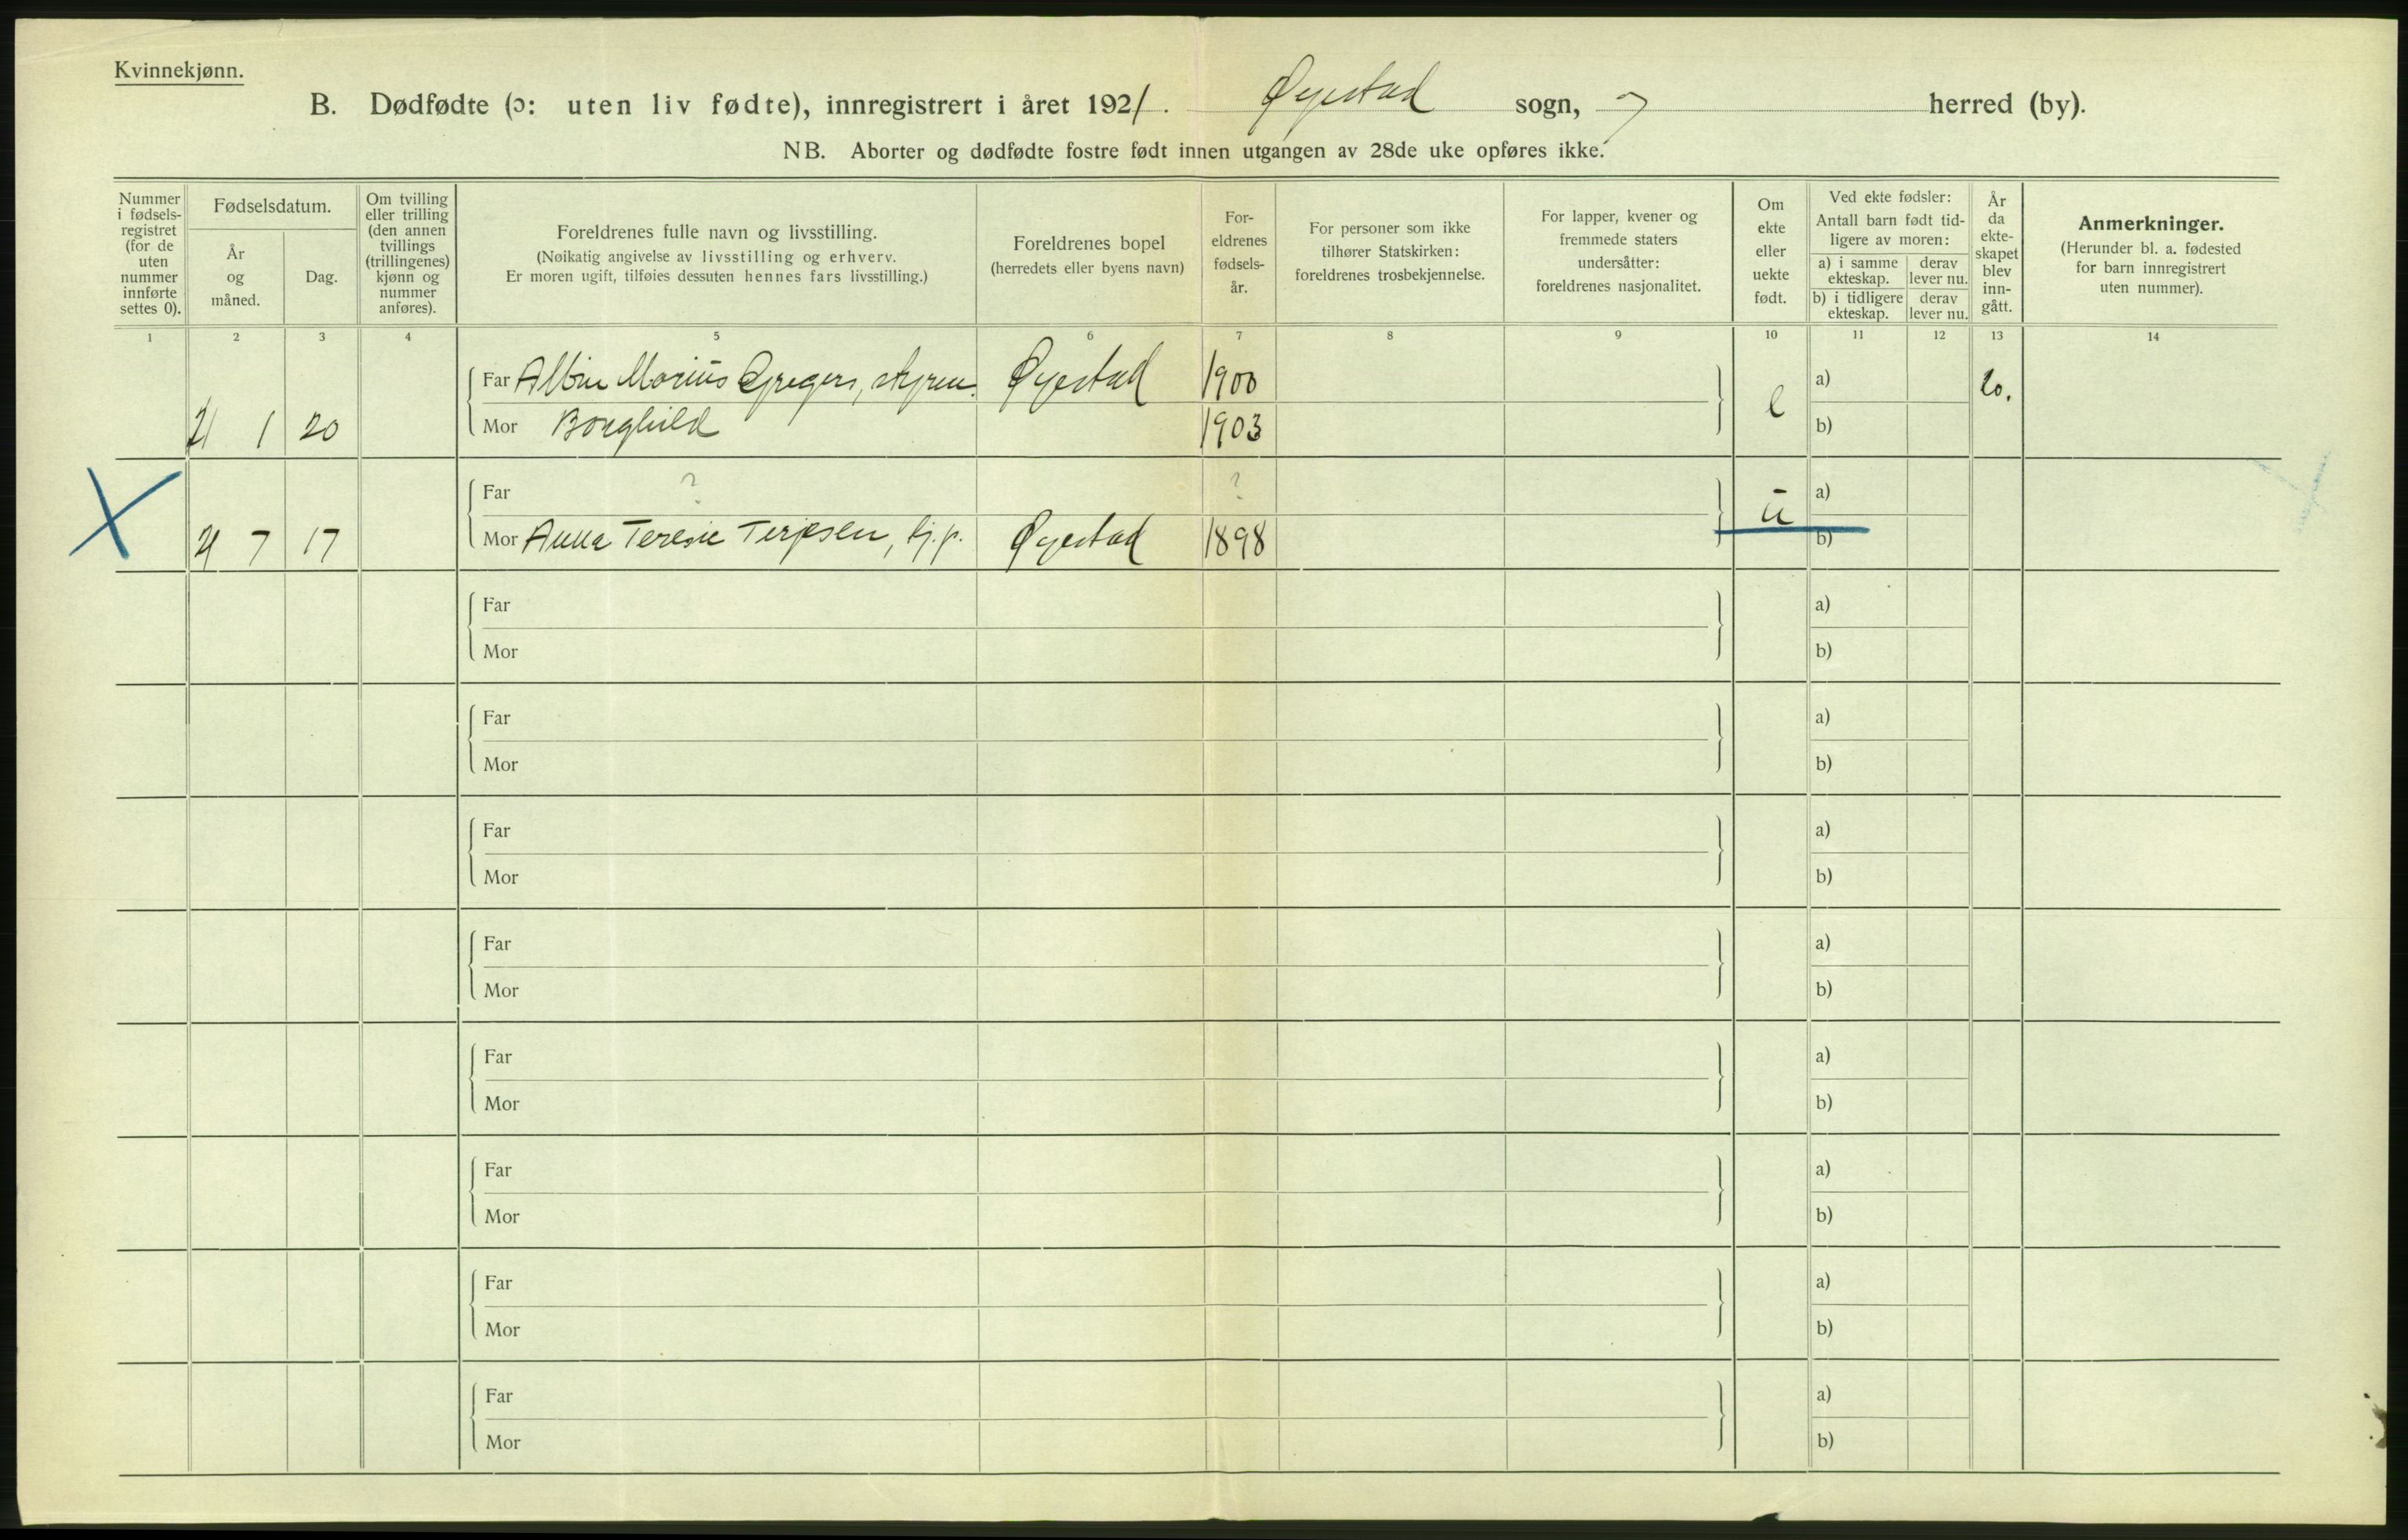 Kvinnekjønn.
B. Dødfødte (ɔ: uten liv fødte), innregistrert i året 1921. Øyestad sogn, herred (by).
NB. Aborter og dødfødte fostre født innen utgangen av 28de uke opføres ikke.
Nummer i fødsels- registret (for de uten nummer innførte settes 0).
Fødselsdatum.
År og måned.
Dag.
Om tvilling eller trilling (den annen tvillings (trillingenes) kjønn og nummer anføres).
Foreldrenes fulle navn og livsstilling.
(Nøikatig angivelse av livsstilling og erhverv.
Er moren ugift, tilføies dessuten hennes fars livsstilling.)
Foreldrenes bopel
(herredets eller byens navn)
For- eldrenes fødsels- år.
For personer som ikke tilhører Statskirken: foreldrenes trosbekjennelse.
For lapper, kvener og fremmede staters undersåtter: foreldrenes nasjonalitet.
Om ekte eller uekte født.
Ved ekte fødsler:
Antall barn født tid- ligere av moren:
a) i samme ekteskap.
derav lever nu.
b) i tidligere ekteskap.
derav lever nu.
År da ekte- skapet blev inn- gått.
Anmerkninger.
(Herunder bl. a. fødested for barn innregistrert uten nummer).
1 2 3 4 5 6 7 8 9 10 11 12 13 14
Far Marius Øyestad 1900 a) 20.
21 1 20 Mor Borghild 1903 e b)
Far ? ? a)
21 7 17 Mor Anna Teresie Terjesen, tj.p. Øyestad 1898 u b)
Far a)
Mor b)
Far a)
Mor b)
Far a)
Mor b)
Far a)
Mor b)
Far a)
Mor b)
Far a)
Mor b)
Far a)
Mor b)
Far a)
Mor b)